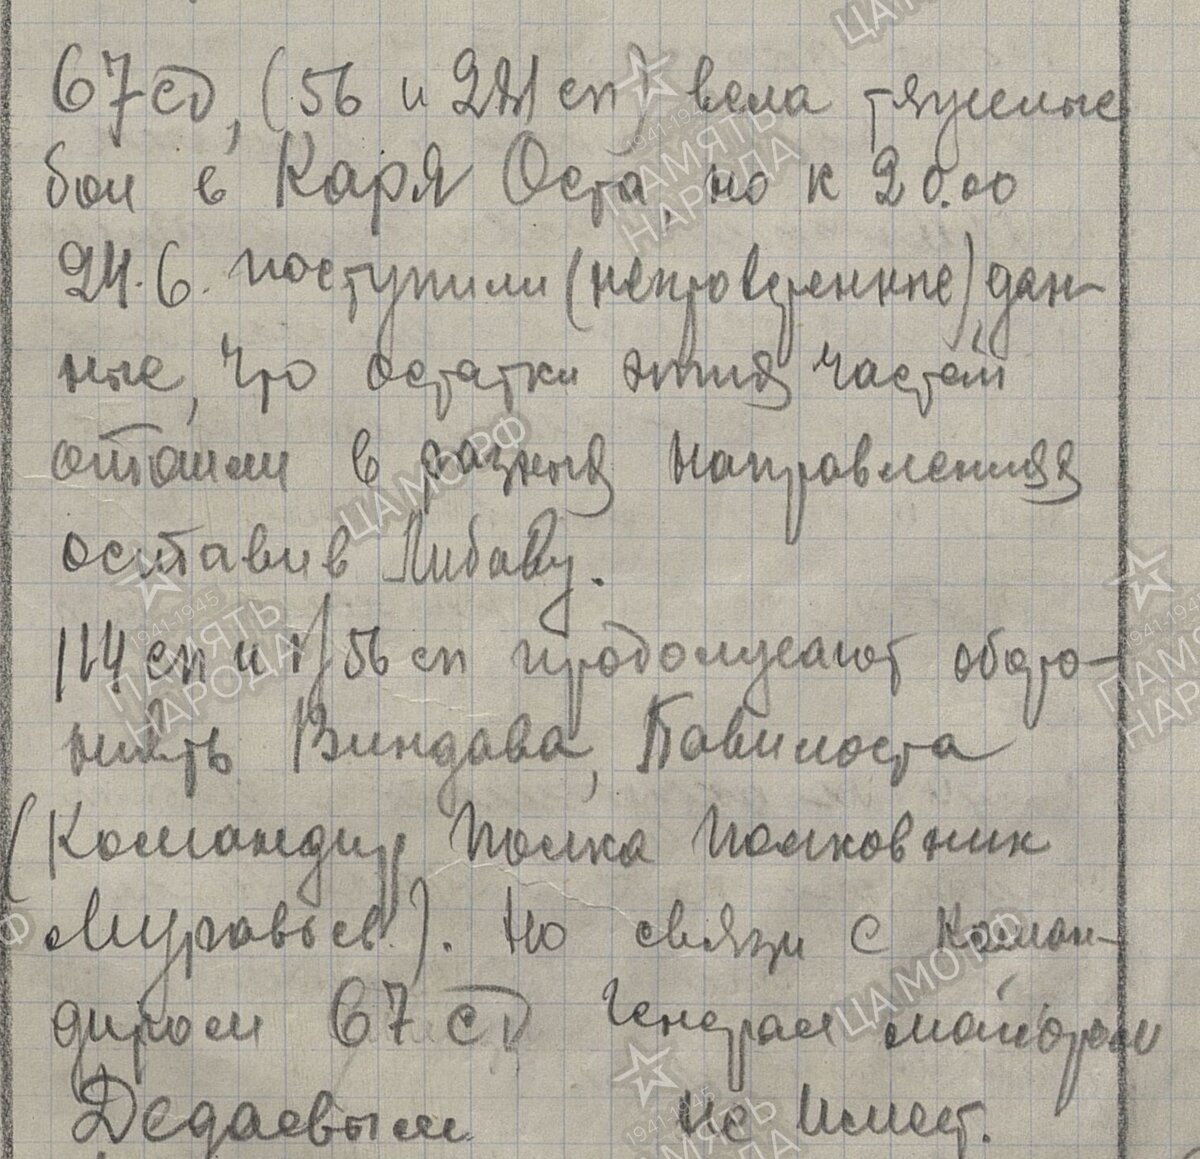 67 сд, (56 и 281 сп) вела тяжелые
бои в Каря Оста, но к 20.00
24.6. поступили (непроверенные) дан-
ные, что остатки этих частей
отошли в разных направлениях
оставив Либаву.
114 сп и 1/56 сп продолжают оборо-
нять Виндава, Павилоста
(Командир полка полковник
Муравьев). Но связи с коман-
диром 67 сд генерал майором
Дедаевым не имеет.
ЦАМО РФ
1941-1945
ПАМЯТЬ
НАРОДА